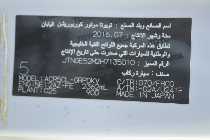 اسم الصانع وبلد الصنع : تويوتا موتور كوربوريشن اليابان
سنة وشهر الإنتاج : 2016. 07
تطابق هذه المركبة جميع اللوائح الفنية الخليجية
والخاصة بالسيارات التي صدرت حتى تاريخ الإنتاج
JTNGE52M2H7135010
صنف : سيارة ركاب
MODEL:ACR50L-GRPDKV
ENGINE:2AZ-FE 2362mL
PLANT:G25
MADE IN JAPAN